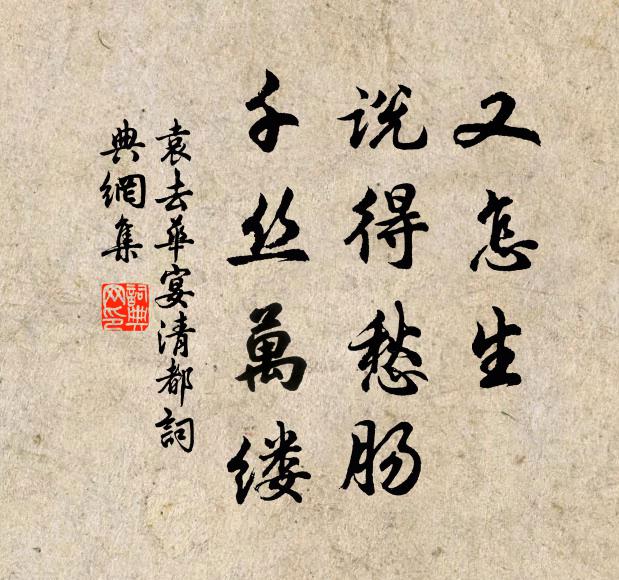 又怎生
说得愁肠
千丝萬缕
袁去華宴清都詞
典網集
詞典
网印